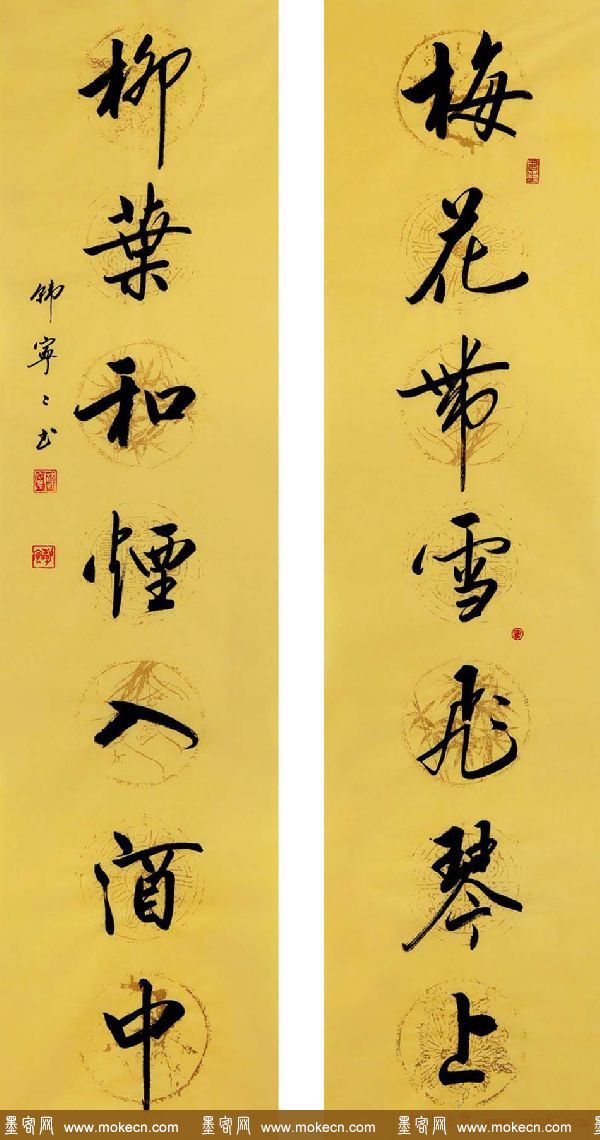 梅花帶雪飛琴上
柳葉和煙入酒中
韩寧寧书
墨客网 www.mokecn.com 墨客网 www.mokecn.com 墨客网 www.mokecn.com